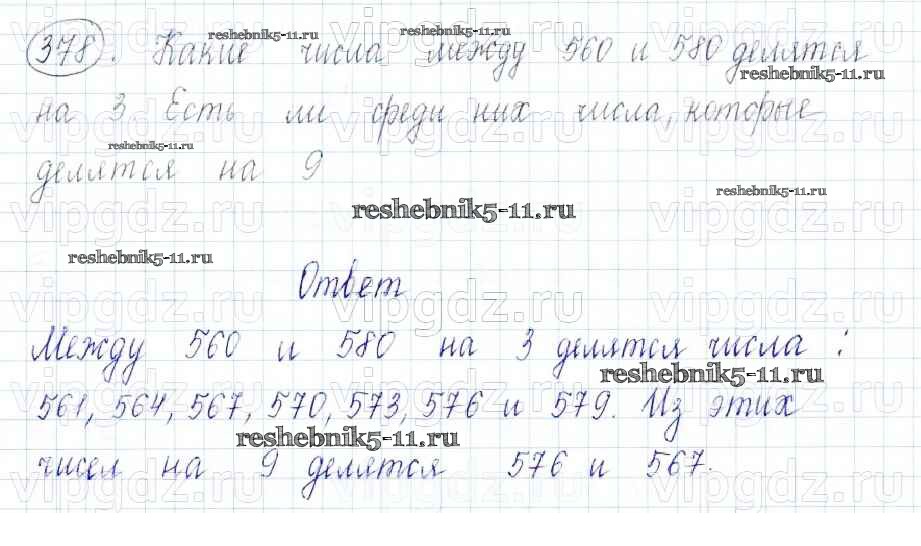 378. Какие числа между 560 и 580 делятся
на 3. Есть ли среди них числа, которые
делятся на 9
Ответ
Между 560 и 580 на 3 делятся числа :
561, 564, 567, 570, 573, 576 и 579. Из этих
чисел на 9 делятся 576 и 567.
reshebnik5-11.ru
reshebnik5-11.ru
reshebnik5-11.ru
reshebnik5-11.ru
reshebnik5-11.ru
reshebnik5-11.ru
reshebnik5-11.ru
reshebnik5-11.ru
reshebnik5-11.ru
vipgdz.ru vipgdz.ru vipgdz.ru
vipgdz.ru vipgdz.ru vipgdz.ru
vipgdz.ru vipgdz.ru vipgdz.ru
vipgdz.ru vipgdz.ru vipgdz.ru
vipgdz.ru vipgdz.ru vipgdz.ru
vipgdz.ru vipgdz.ru vipgdz.ru